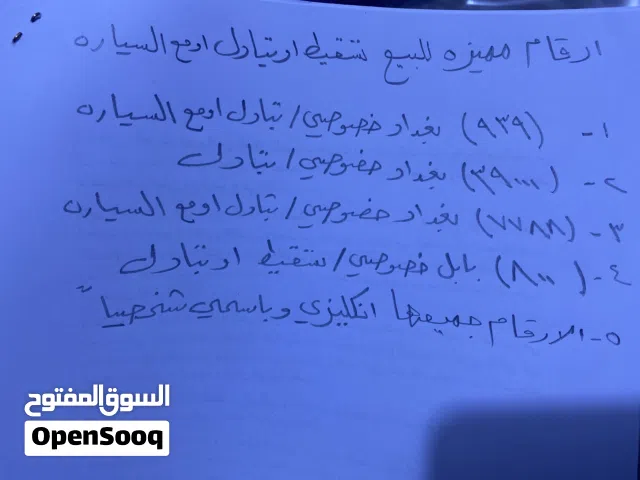 ارقام مميزه للبيع تسقيط او تبادل او مع السياره
١- (٩٣٩) بغداد خصوصي / تبادل او مع السياره
٢- (٣٩٠٠٠) بغداد خصوصي / تبادل
٣- (٧٧٨٨) بغداد خصوصي / تبادل او مع السياره
٤- (٨٠٠٠) بابل خصوصي / تسقيط او تبادل
٥- الارقام جميعها انكليزي وباسمي شخصياً
السوق المفتوح
OpenSooq